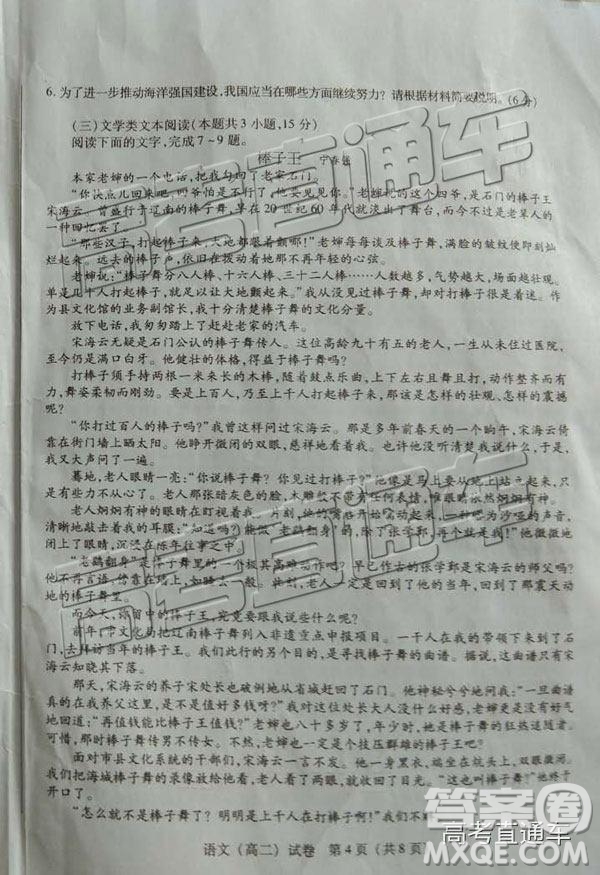 6. 为了进一步推动海洋强国建设,我国应当在哪些方面继续努力?请根据材料简要说明。(6分)
(三)文学类文本阅读(本题共3小题,15分)
阅读下面的文字,完成7~9题。
棒子王 宁春强
本家老婶的一个电话,把我勾回了老家石门。
“你快点儿回来吧,四爷怕是不行了,他要见见你。”老婶说的这个四爷,是石门的棒子王
宋海云。曾盛行于辽南的棒子舞,早在20世纪60年代就淡出了舞台,而今不过是老辈人的
一种回忆罢了。
“那些汉子,打起棒子来,大地都跟着颤哪!”老婶每每谈及棒子舞,满脸的皱纹便即刻灿
烂起来。远去的棒子声,依旧在拨动着她那不再年轻的心弦。
老婶说:“棒子舞分八人棒、十六人棒、三十二人棒……人数越多,气势越大,场面越壮观。
单是几十人打起棒子,就会让大地颤起来。”我从没见过棒子舞,却对打棒子很是着迷。
作为县文化馆的业务副馆长,我十分清楚棒子舞的文化分量。
放下电话,我匆匆踏上了赶赴老家的汽车。
宋海云无疑是石门公认的棒子舞传人。这位高龄九十有五的老人,一生从未住过医院,
至今仍是满口白牙。他健壮的体格,得益于棒子舞吗?
打棒子须手持两根一米来长的木棒,随着鼓点乐曲,上下左右且舞且打,动作整齐而有
力,舞姿柔韧而刚劲。如果是上百人,乃至上千人打起棒来,那该是怎样的壮观、怎样的震撼
呢?
“你打过百人的棒子吗?”我曾这样问过宋海云。那是多年前春天的一个晌午,宋海云倚
靠在街门墙上晒太阳。他睁开微闭的双眼,慈祥地看着我。也许他没听清楚我说什么,于是,
我又大声问了一遍。
蓦地,老人眼睛一亮:“你说棒子舞?你见过打棒子?”他像是马上要从地上站起来,只
是有些力不从心了。老人那张暗灰色的脸,木雕般不带任何表情,惟眼睛依然炯炯有神。
老人炯炯有神的眼睛在盯视着我,一会儿,他的嘴唇开始启动起来,一种吧为沙哑的声音,
清晰地敲击着我的耳膜:“知道吗?能做‘老鹞翻身’的,除了张学郅,就是我!”他微微地
闭上了眼睛,沉浸在陈年往事之中。
“老鹞翻身”是棒子舞里的一个极其高难动作吧?早已作古的张学郅是宋海云的师父吗?
他不再言语,倚靠在墙上,如铜一般。此刻,老人一定是回到了他的当年,回到了那震天动
地的棒子舞里。
而今天,弥留中的棒子王,究竟要跟我说些什么呢?
前年,市文化局把辽南棒子舞列入非遗重点申报项目。一干人在我的带领下来到了石
门,去拜访当年的棒子王。我们此行的另个目的,是寻找棒子舞的曲谱。据说,这曲谱只有
宋海云知晓其下落。
那天,宋海云的养子宋处长也破例地从省城赶回了石门。他神秘兮兮地问我:“一旦曲谱
真的在我养父这里,是不是值好多钱呀?”我对这位处长大人没什么好感,老婶更是没有好气
地回道:“再值钱能比棒子王值钱?”老婶也八十多岁了,年少时,她是棒子舞的狂热追随者。
可惜,那时棒子舞传男不传女。不然,老婶也一定是个技压群雄的棒子王吧?
面对市县文化系统的干部们,宋海云一言不发。他一身黑衣,端坐在炕头,双眼微闭。
我们把海城棒子舞的录像放给他看,老人看了两眼,就收回了目光。“这也叫棒子舞?”他终于
开口了。
“怎么就不是棒子舞了?明明是上千人在打棒子啊!”我们不
语文(高二)试卷 第4页(共8页)
高考直通车
答案圈
高考直通车
MXQE.COM